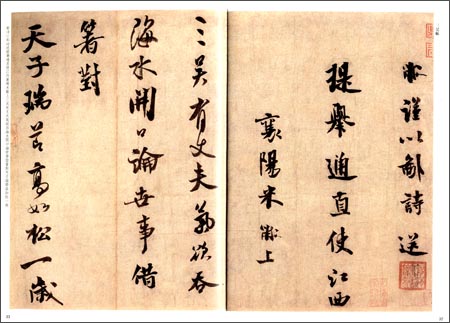 黻謹以鄙詩送
提舉通直使江西
襄陽米黻上
三吴有丈夫氣欲吞
海水開口論世事借
箸對
天子瑞節高如松一歲